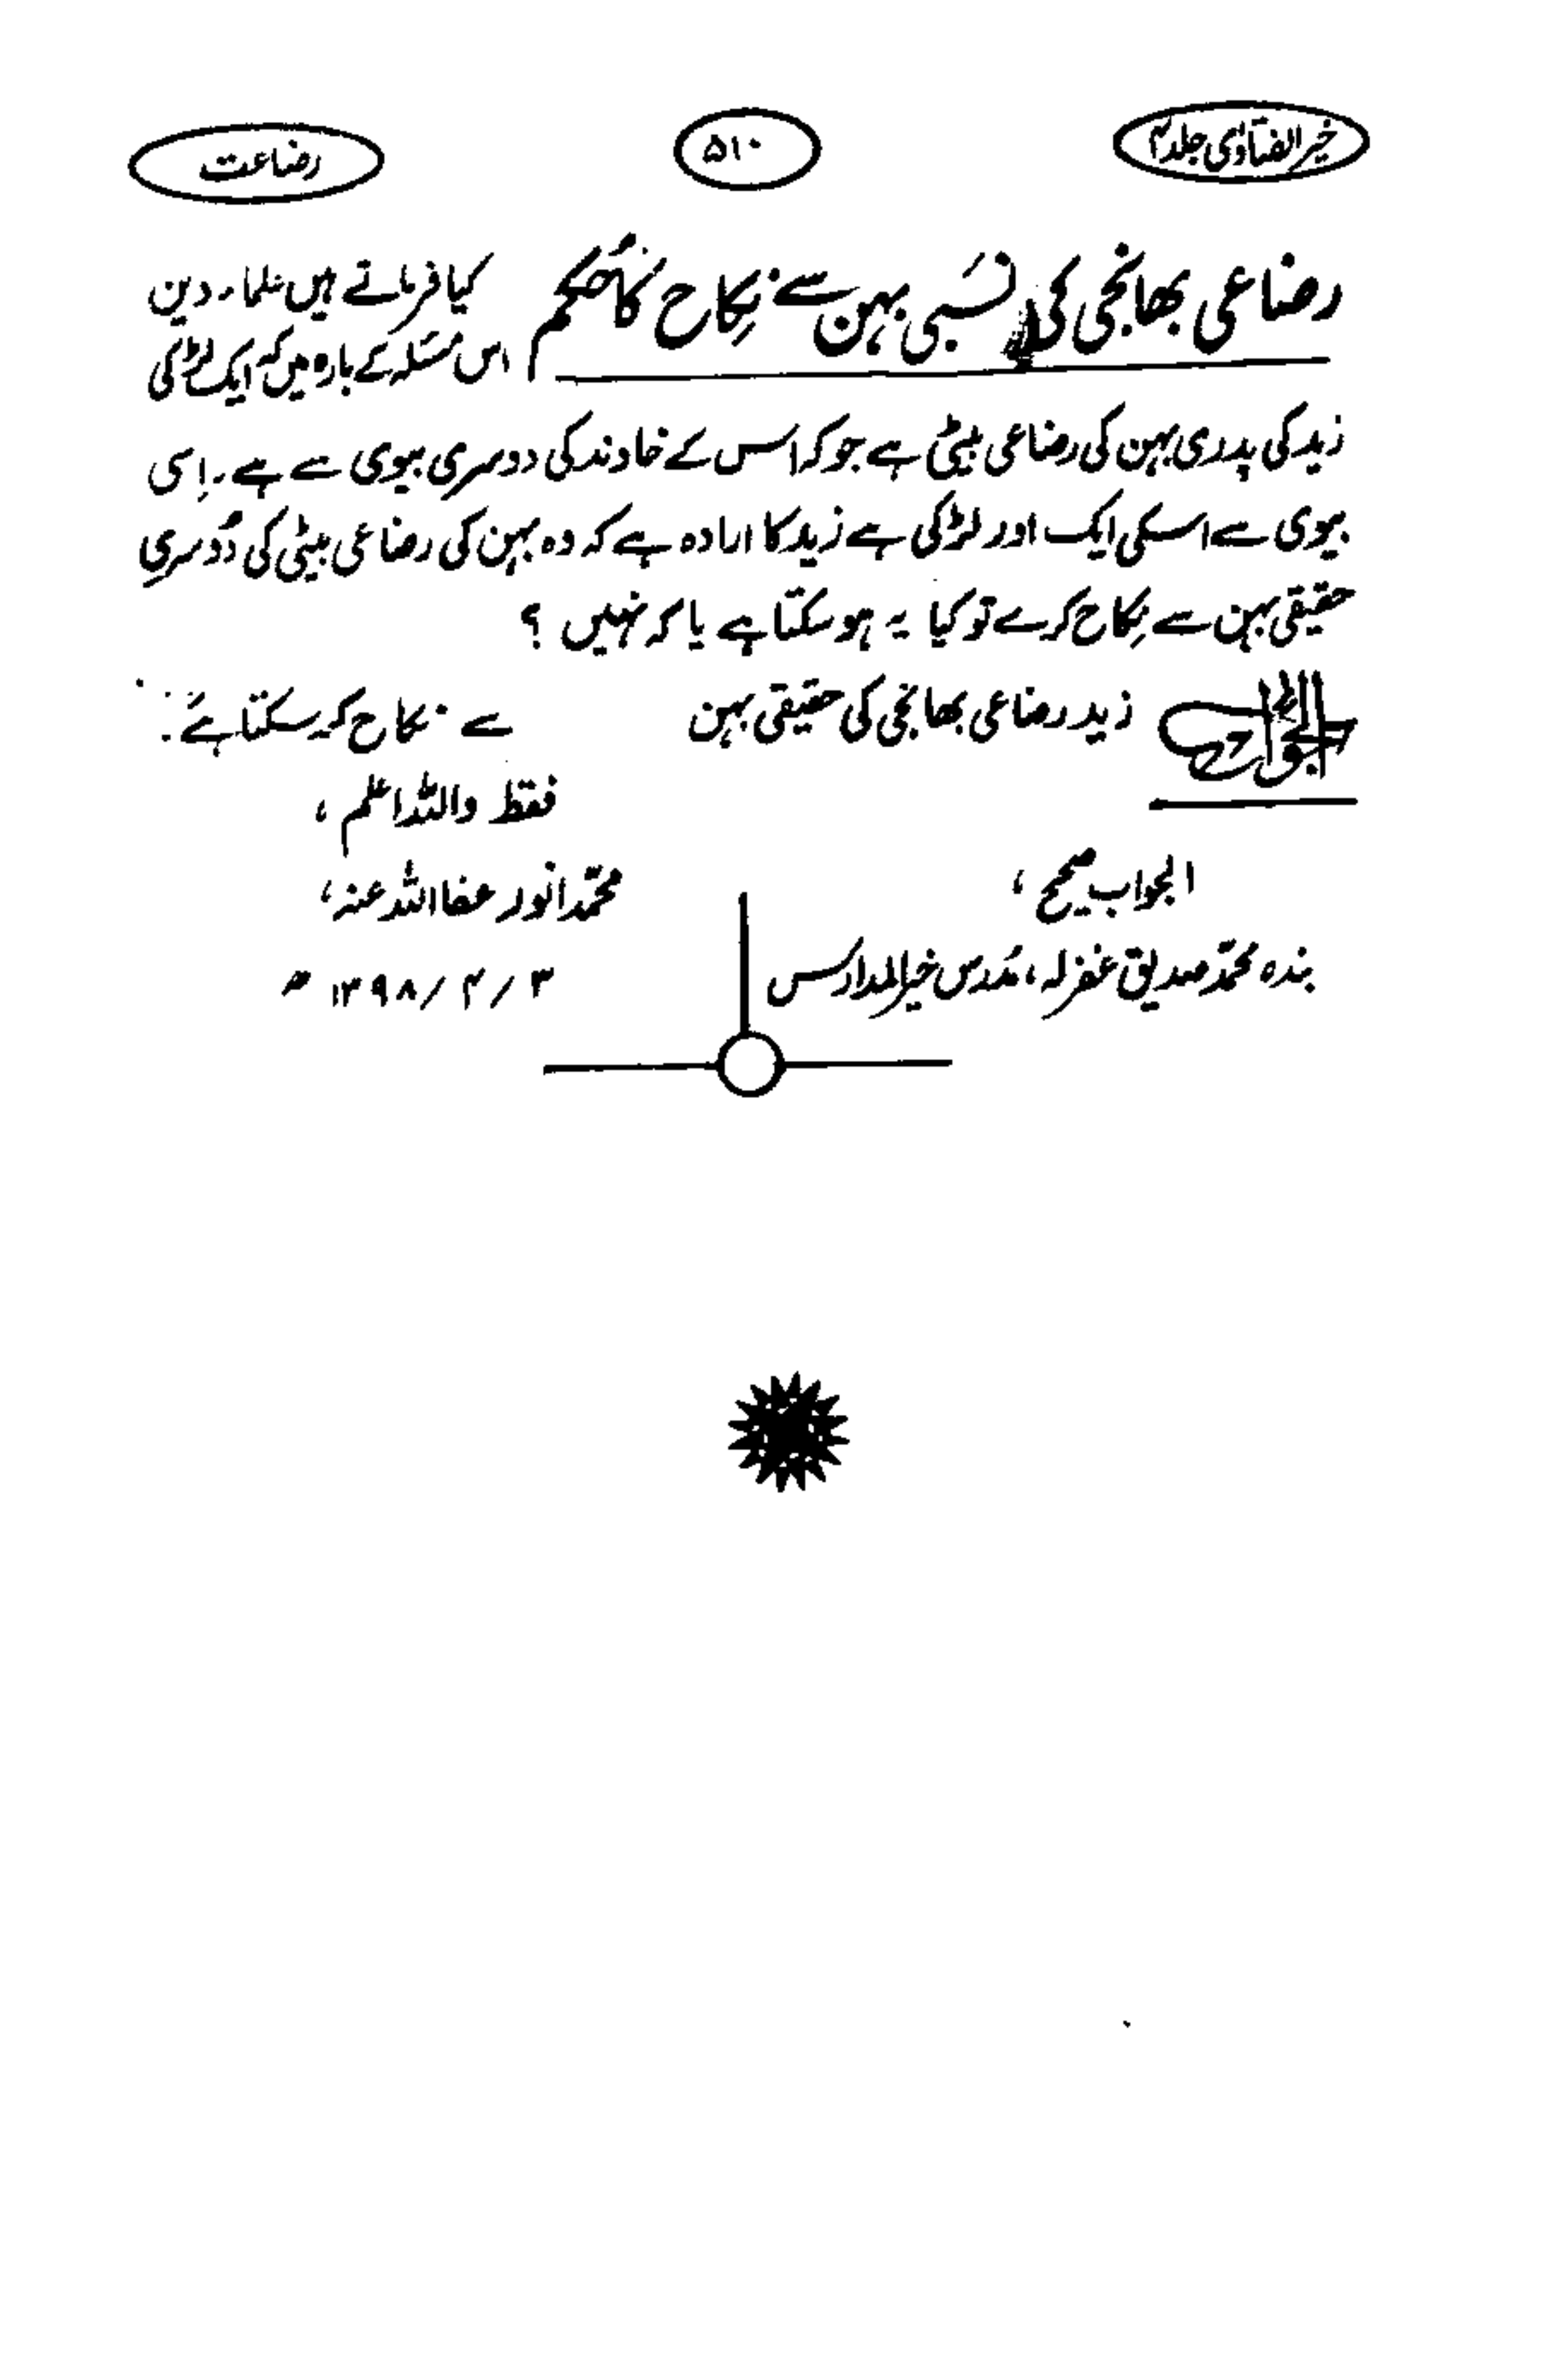 خیر الفتاویٰ جلد ۴
۵۱۰
رضاعت
رضاعی بھانجی کی نسَبی بہن سے نِکاح کا حُکم
کیا فرماتے ہیں علماء دین
اس مسئلہ کے بارہ میں کہ ایک لڑکی
زید کی پدری بہن کی رضاعی بیٹی ہے جو کہ اس کے خاوند کی دوسری بیوی سے ہے۔ اِسی
بیوی سے اسکی ایک اور لڑکی ہے زید کا ارادہ ہے کہ وہ بہن کی رضاعی بیٹی کی دُوسری
حقیقی بہن سے نِکاح کرے تو کیا یہ ہو سکتا ہے یا کہ نہیں ؟
الجواب زید رضاعی بھانجی کی حقیقی بہن سے نکاح کر سکتا ہے:
فقط واللہ اعلم ،
الجواب صحیح ،
بندہ محمّد صدیق غفرلہ ، مُدرس خیر المدارس
محمّد انور عفا اللہ عنہ ،
۳ / ۴ / ۱۳۹۸ ھ